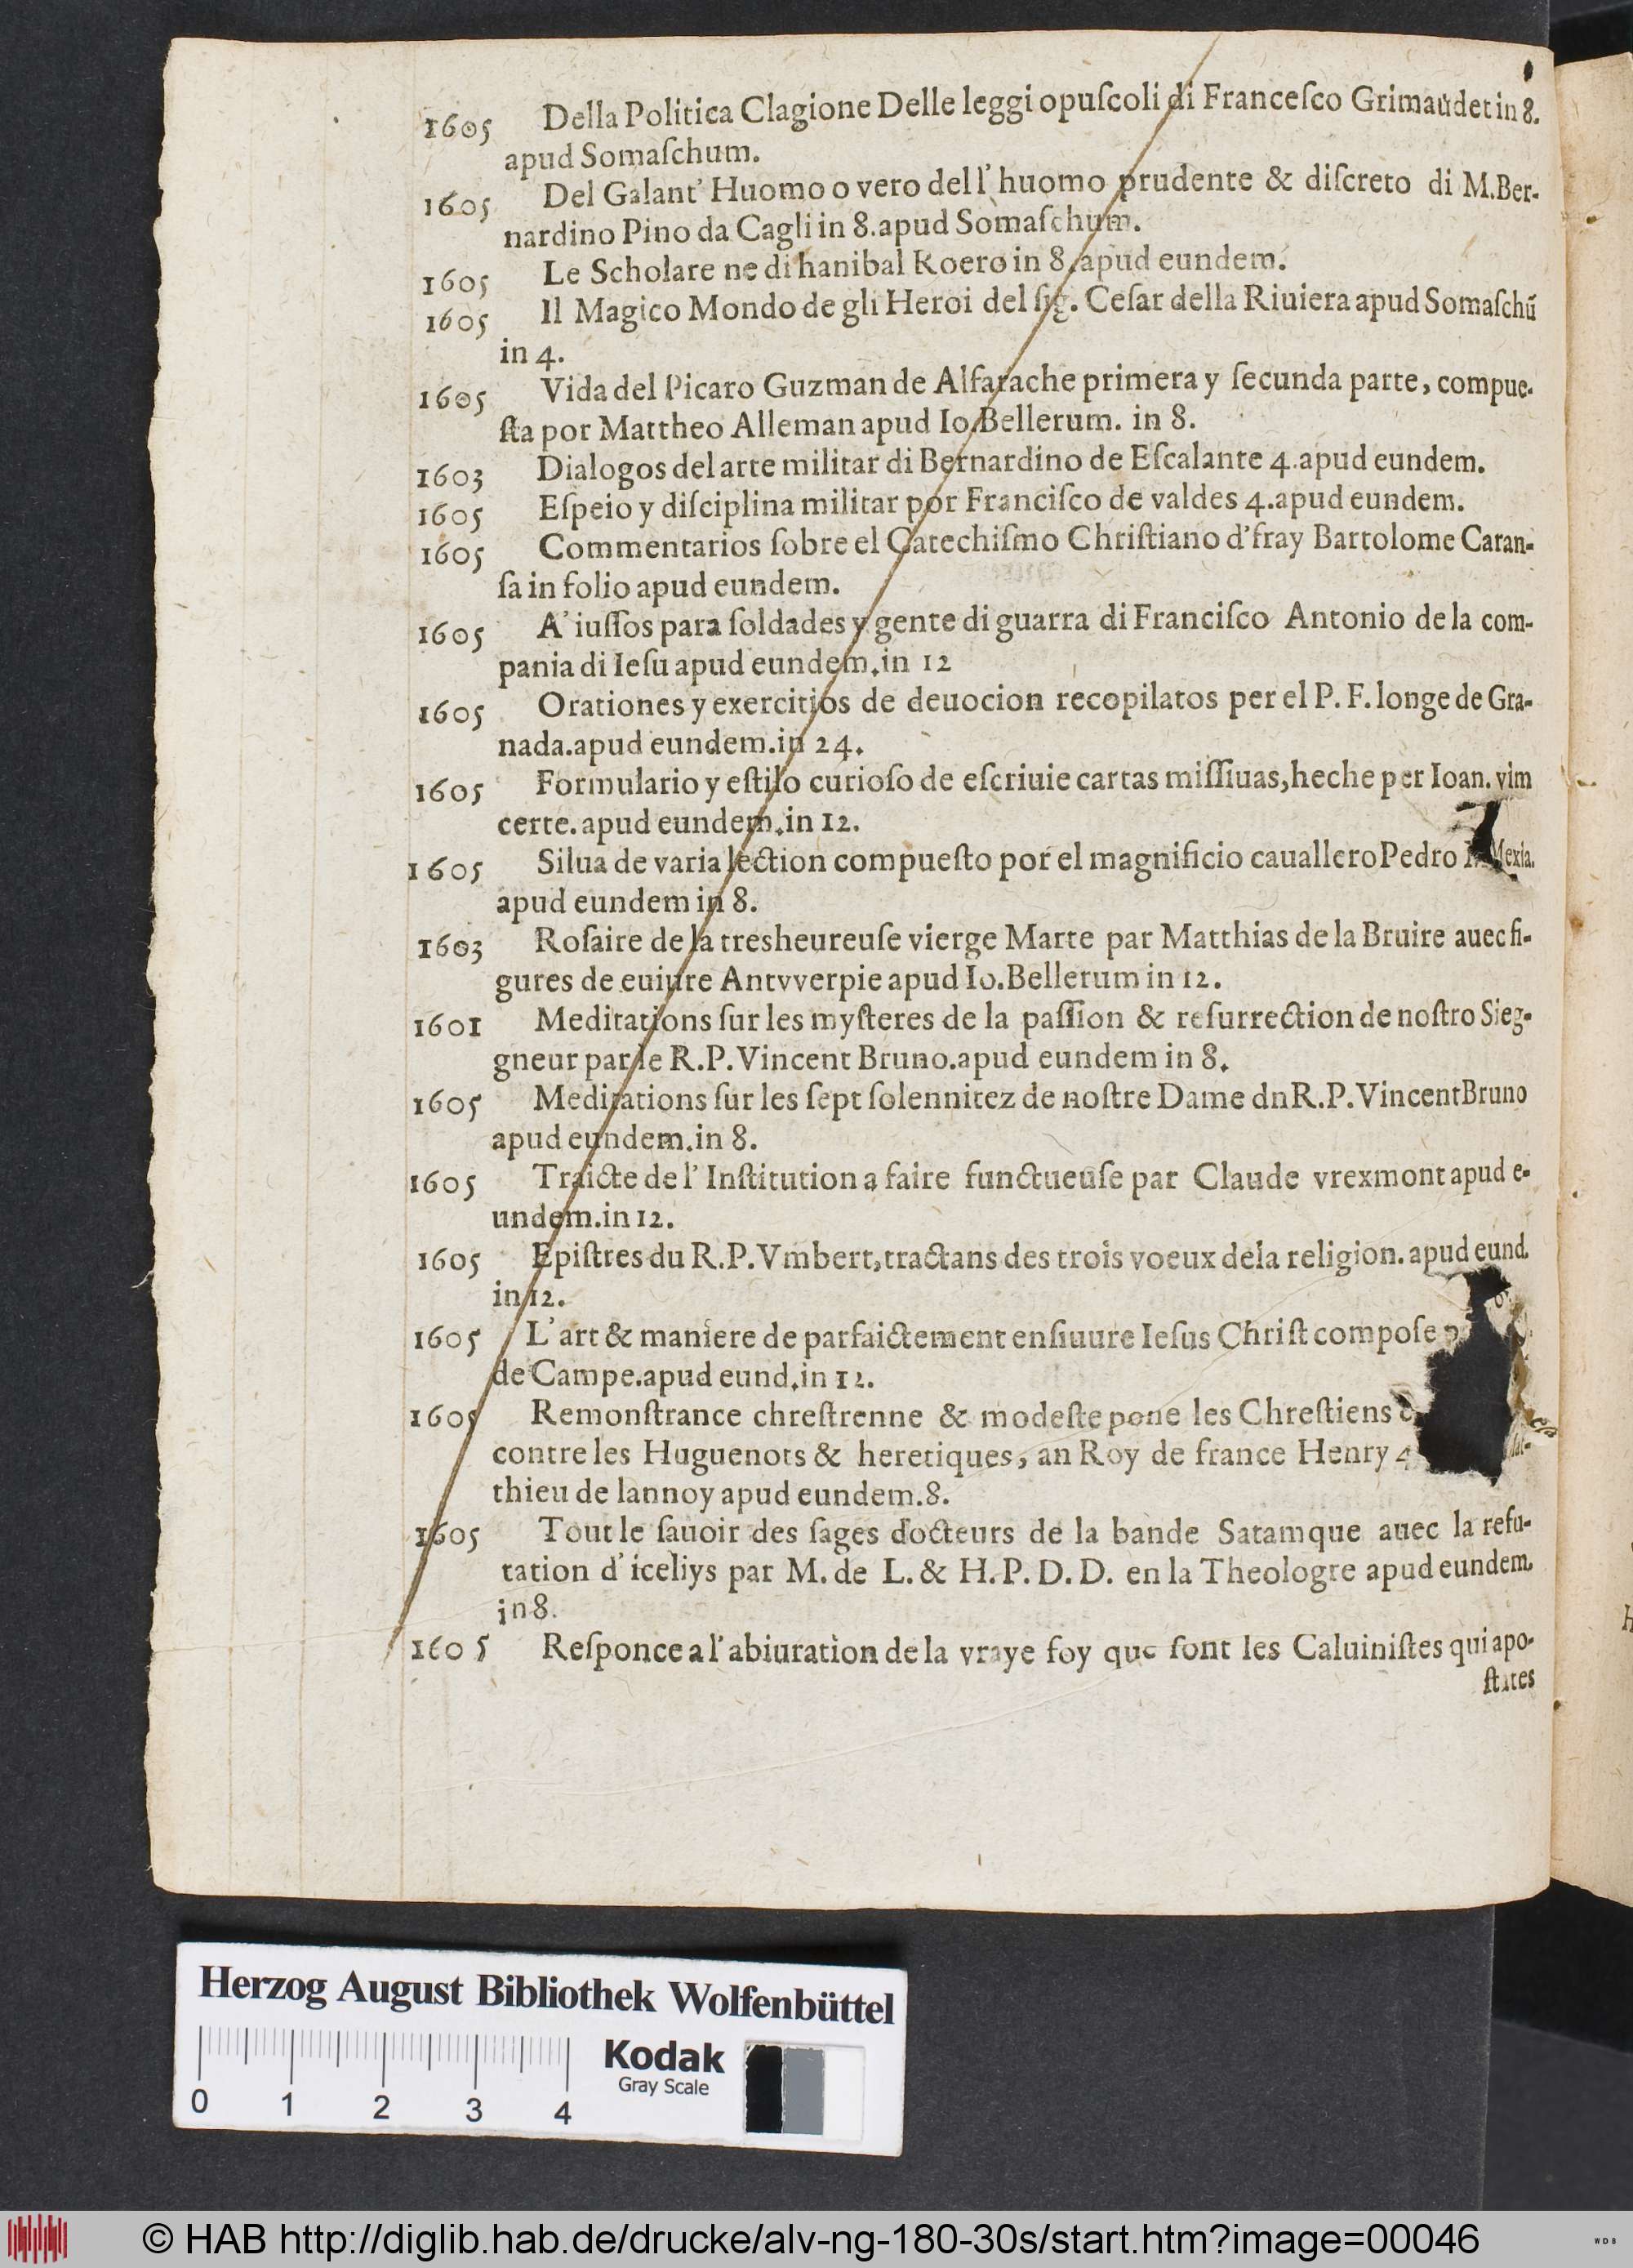 1605 Della Politica Clagione Delle leggi opuſcoli di Franceſco Grimaudet in 8.
apud Somaſchum.
1605 Del Galant' Huomo o vero dell' huomo prudente & diſcreto di M. Ber-
nardino Pino da Cagli in 8. apud Somaſchum.
1605 Le Scholare ne di hanibal Roero in 8. apud eundem.
1605 Il Magico Mondo de gli Heroi del ſig. Ceſar della Riuiera apud Somaſchū
in 4.
1605 Vida del Picaro Guzman de Alfarache primera y ſecunda parte, compue-
ſta por Mattheo Alleman apud Io. Bellerum. in 8.
1603 Dialogos del arte militar di Bernardino de Eſcalante 4. apud eundem.
1605 Eſpeio y diſciplina militar por Franciſco de valdes 4. apud eundem.
1605 Commentarios ſobre el Catechiſmo Chriſtiano d'fray Bartolome Caran-
ſa in folio apud eundem.
1605 A' iuſſos para ſoldades y gente di guarra di Franciſco Antonio de la com-
pania di Ieſu apud eundem. in 12
1605 Orationes y exercitios de deuocion recopilatos per el P. F. longe de Gra-
nada. apud eundem. in 24.
1605 Formulario y eſtilo curioſo de eſcriuie cartas miſſiuas, heche per Ioan. vim
certe. apud eundem. in 12.
1605 Silua de varia lection compueſto por el magnificio cauallero Pedro Mexia.
apud eundem in 8.
1603 Roſaire de la tresheureuſe vierge Marte par Matthias de la Bruire auec fi-
gures de euiure Antvverpie apud Io. Bellerum in 12.
1601 Meditations ſur les myſteres de la paſſion & reſurrection de noſtro Sieg-
gneur par le R. P. Vincent Bruno. apud eundem in 8.
1605 Meditations ſur les ſept ſolennitez de noſtre Dame dn R. P. Vincent Bruno
apud eundem. in 8.
1605 Traicte de l' Inſtitution a faire functueuſe par Claude vrexmont apud e-
undem. in 12.
1605 Epiſtres du R. P. Vmbert, tractans des trois voeux dela religion. apud eund.
in 12.
1605 L' art & maniere de parfaictement enſiuure Ieſus Chriſt compoſe
de Campe. apud eund. in 12.
1605 Remonſtrance chreſtrenne & modeſte pone les Chreſtiens
contre les Huguenots & heretiques, an Roy de france Henry 4
thieu de lannoy apud eundem. 8.
1605 Tout le ſauoir des ſages docteurs de la bande Satamque auec la refu-
tation d' iceliys par M. de L. & H. P. D. D. en la Theologre apud eundem.
in 8.
1605 Reſponce a l' abiuration de la vraye foy que font les Caluiniſtes qui apo-
ſtates
Herzog August Bibliothek Wolfenbüttel
Kodak
Gray Scale
0 1 2 3 4
© HAB http://diglib.hab.de/drucke/alv-ng-180-30s/start.htm?image=00046